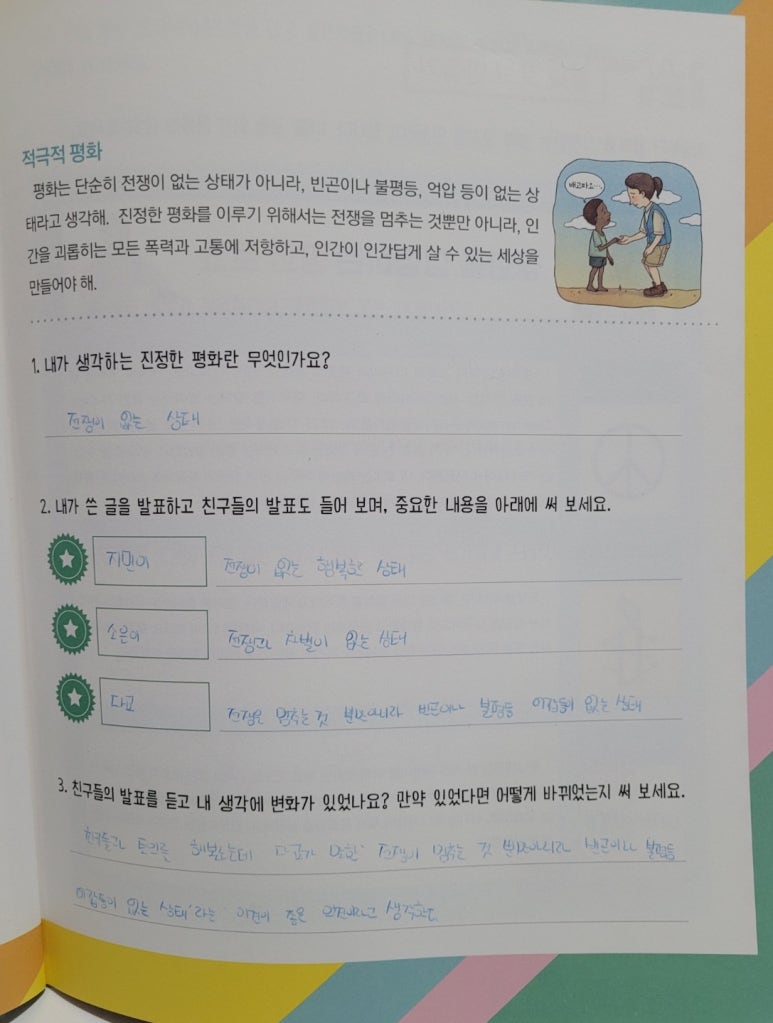 적극적 평화
평화는 단순히 전쟁이 없는 상태가 아니라, 빈곤이나 불평등, 억압 등이 없는 상
태라고 생각해. 진정한 평화를 이루기 위해서는 전쟁을 멈추는 것뿐만 아니라, 인
간을 괴롭히는 모든 폭력과 고통에 저항하고, 인간이 인간답게 살 수 있는 세상을
만들어야 해.
배고파요…
1. 내가 생각하는 진정한 평화란 무엇인가요?
전쟁이 없는 상태
2. 내가 쓴 글을 발표하고 친구들의 발표도 들어 보며, 중요한 내용을 아래에 써 보세요.
지민이 전쟁이 없는 행복한 상태
소은이 전쟁과 차별이 없는 상태
다교 전쟁을 멈추는 것 뿐만아니라 빈곤이나 불평등 억압등이 없는 상태
3. 친구들의 발표를 듣고 내 생각에 변화가 있었나요? 만약 있었다면 어떻게 바뀌었는지 써 보세요.
친구들과 토론을 해봤는데 다교가 말한 '전쟁이 멈추는 것 뿐만아니라 빈곤이나 불평등
억압등이 없는 상태'라는 의견이 좋은 의견이라고 생각한다